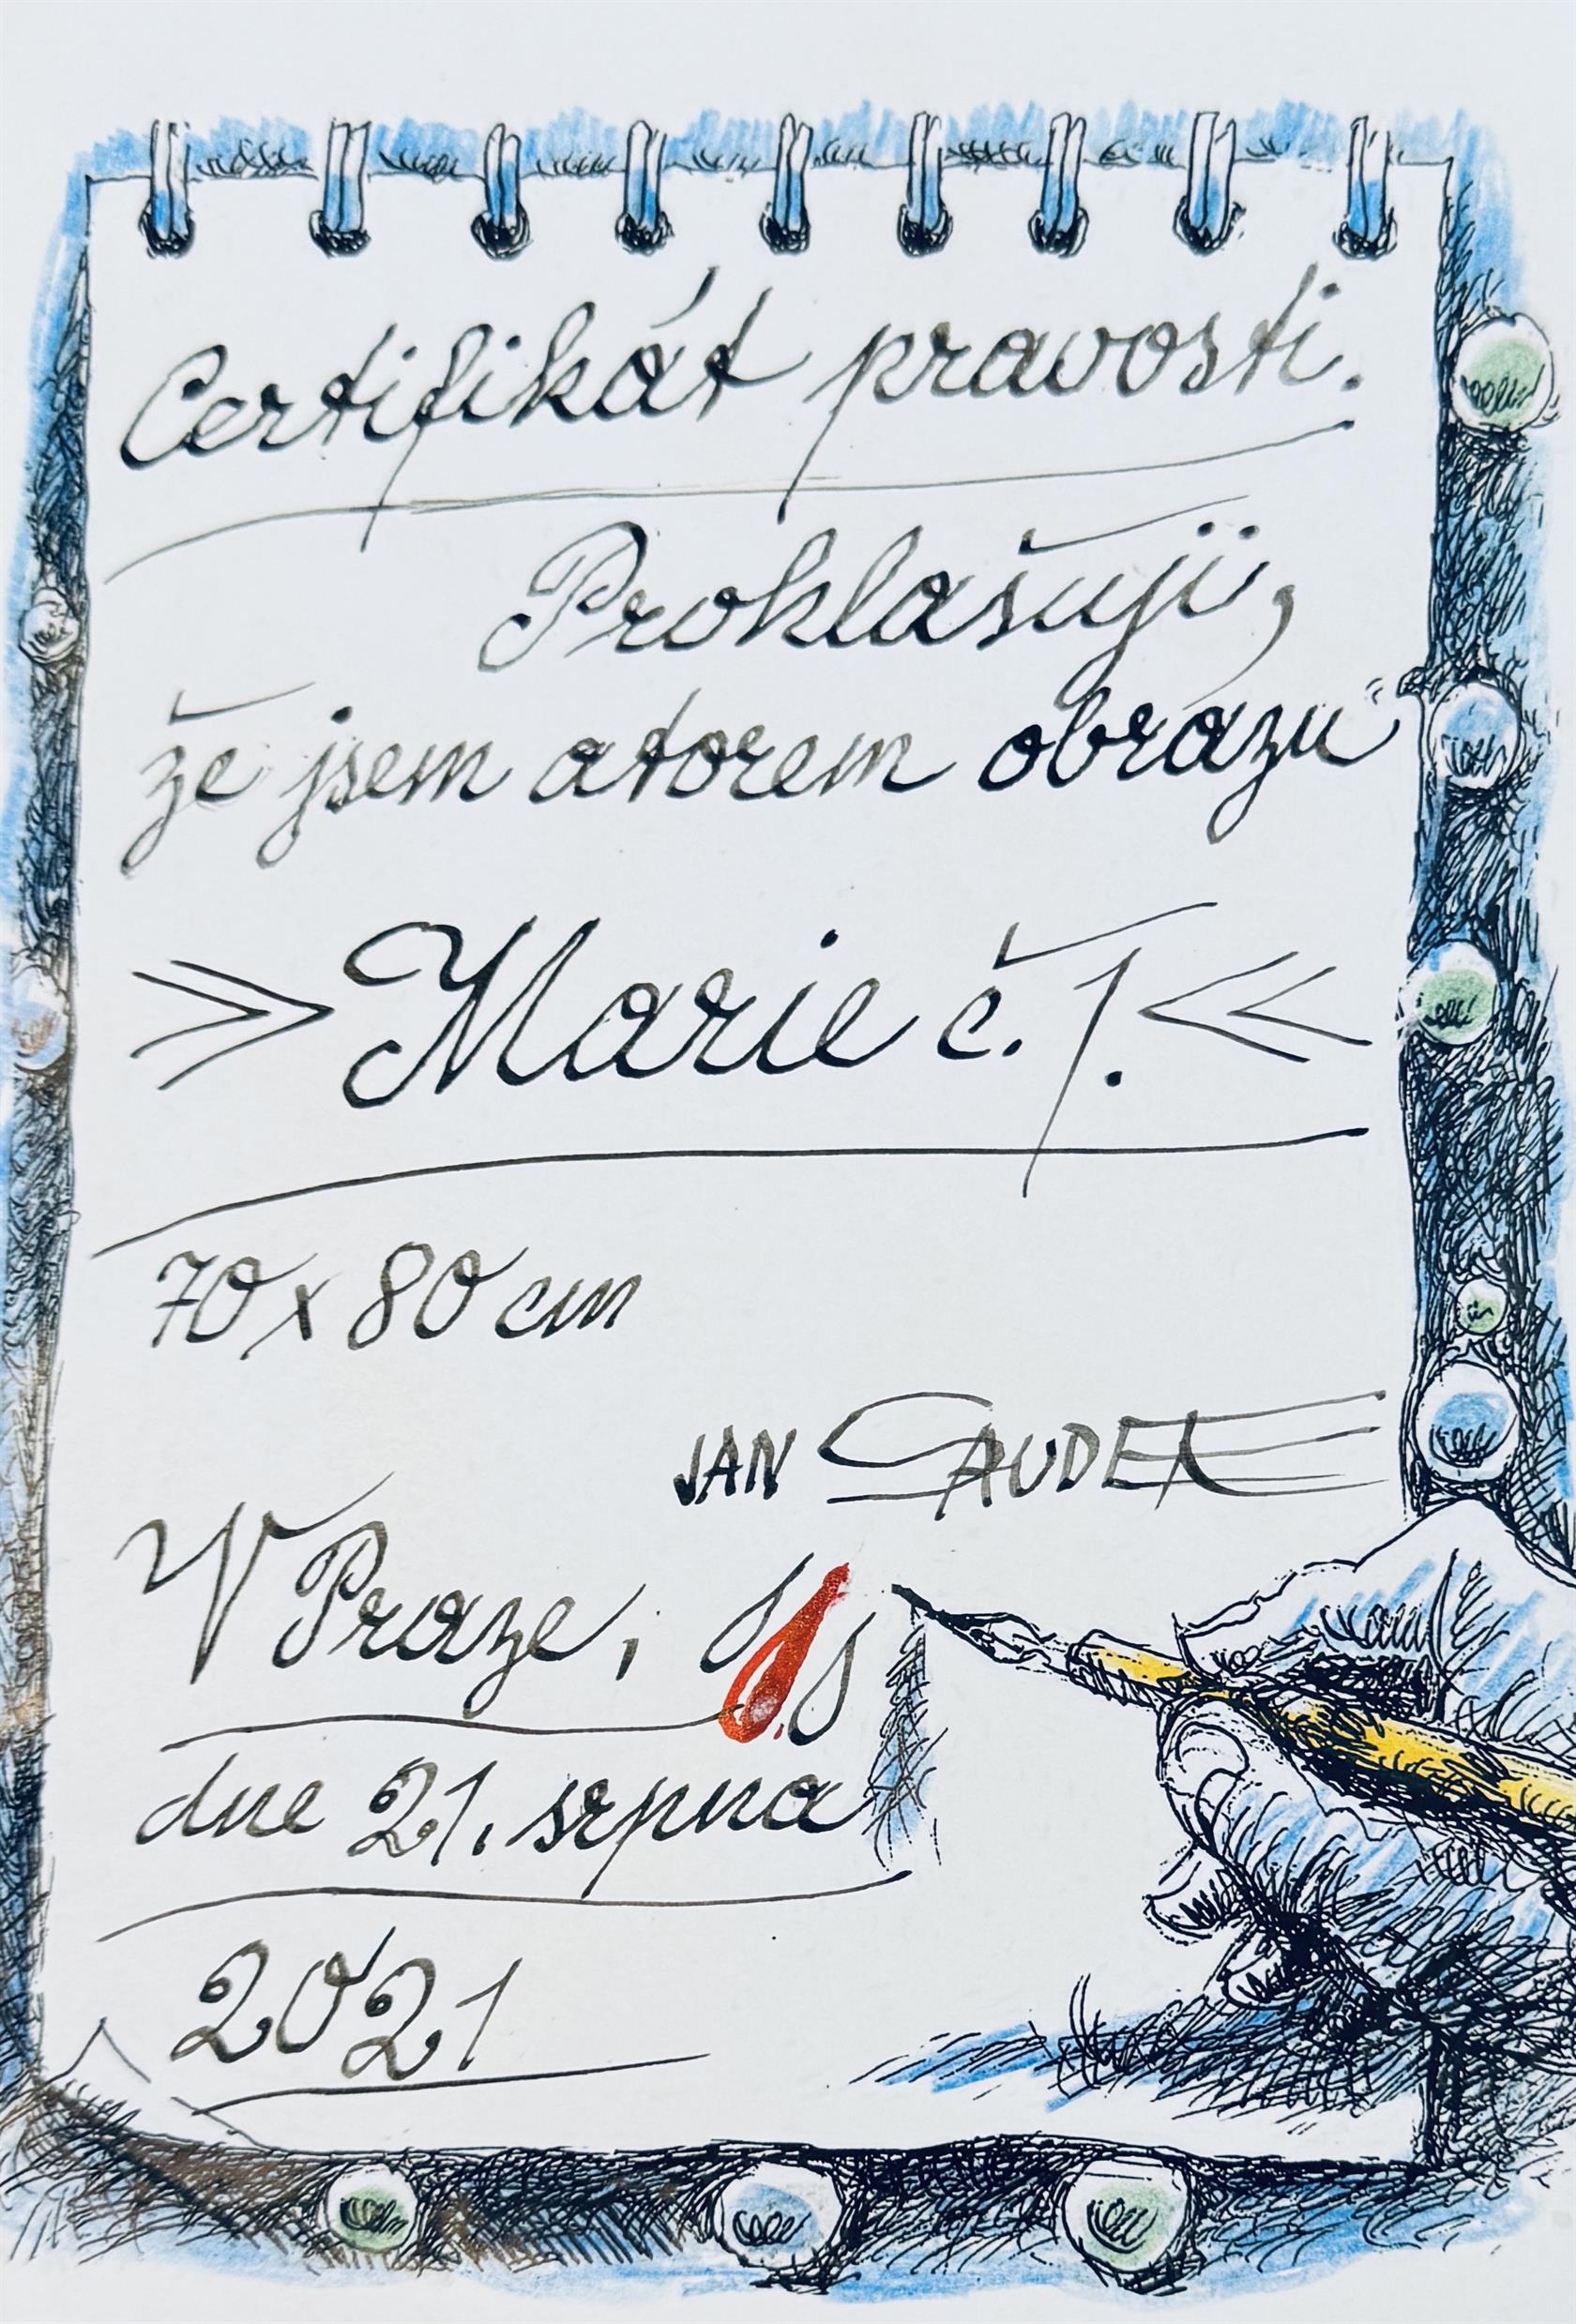 Certifikát pravosti.
Prohlašuji,
že jsem atorem obrazu
>>Marie č. 1.<<
70 x 80 cm
JAN SAUDEK
V Praze,
dne 21. srpna
2021